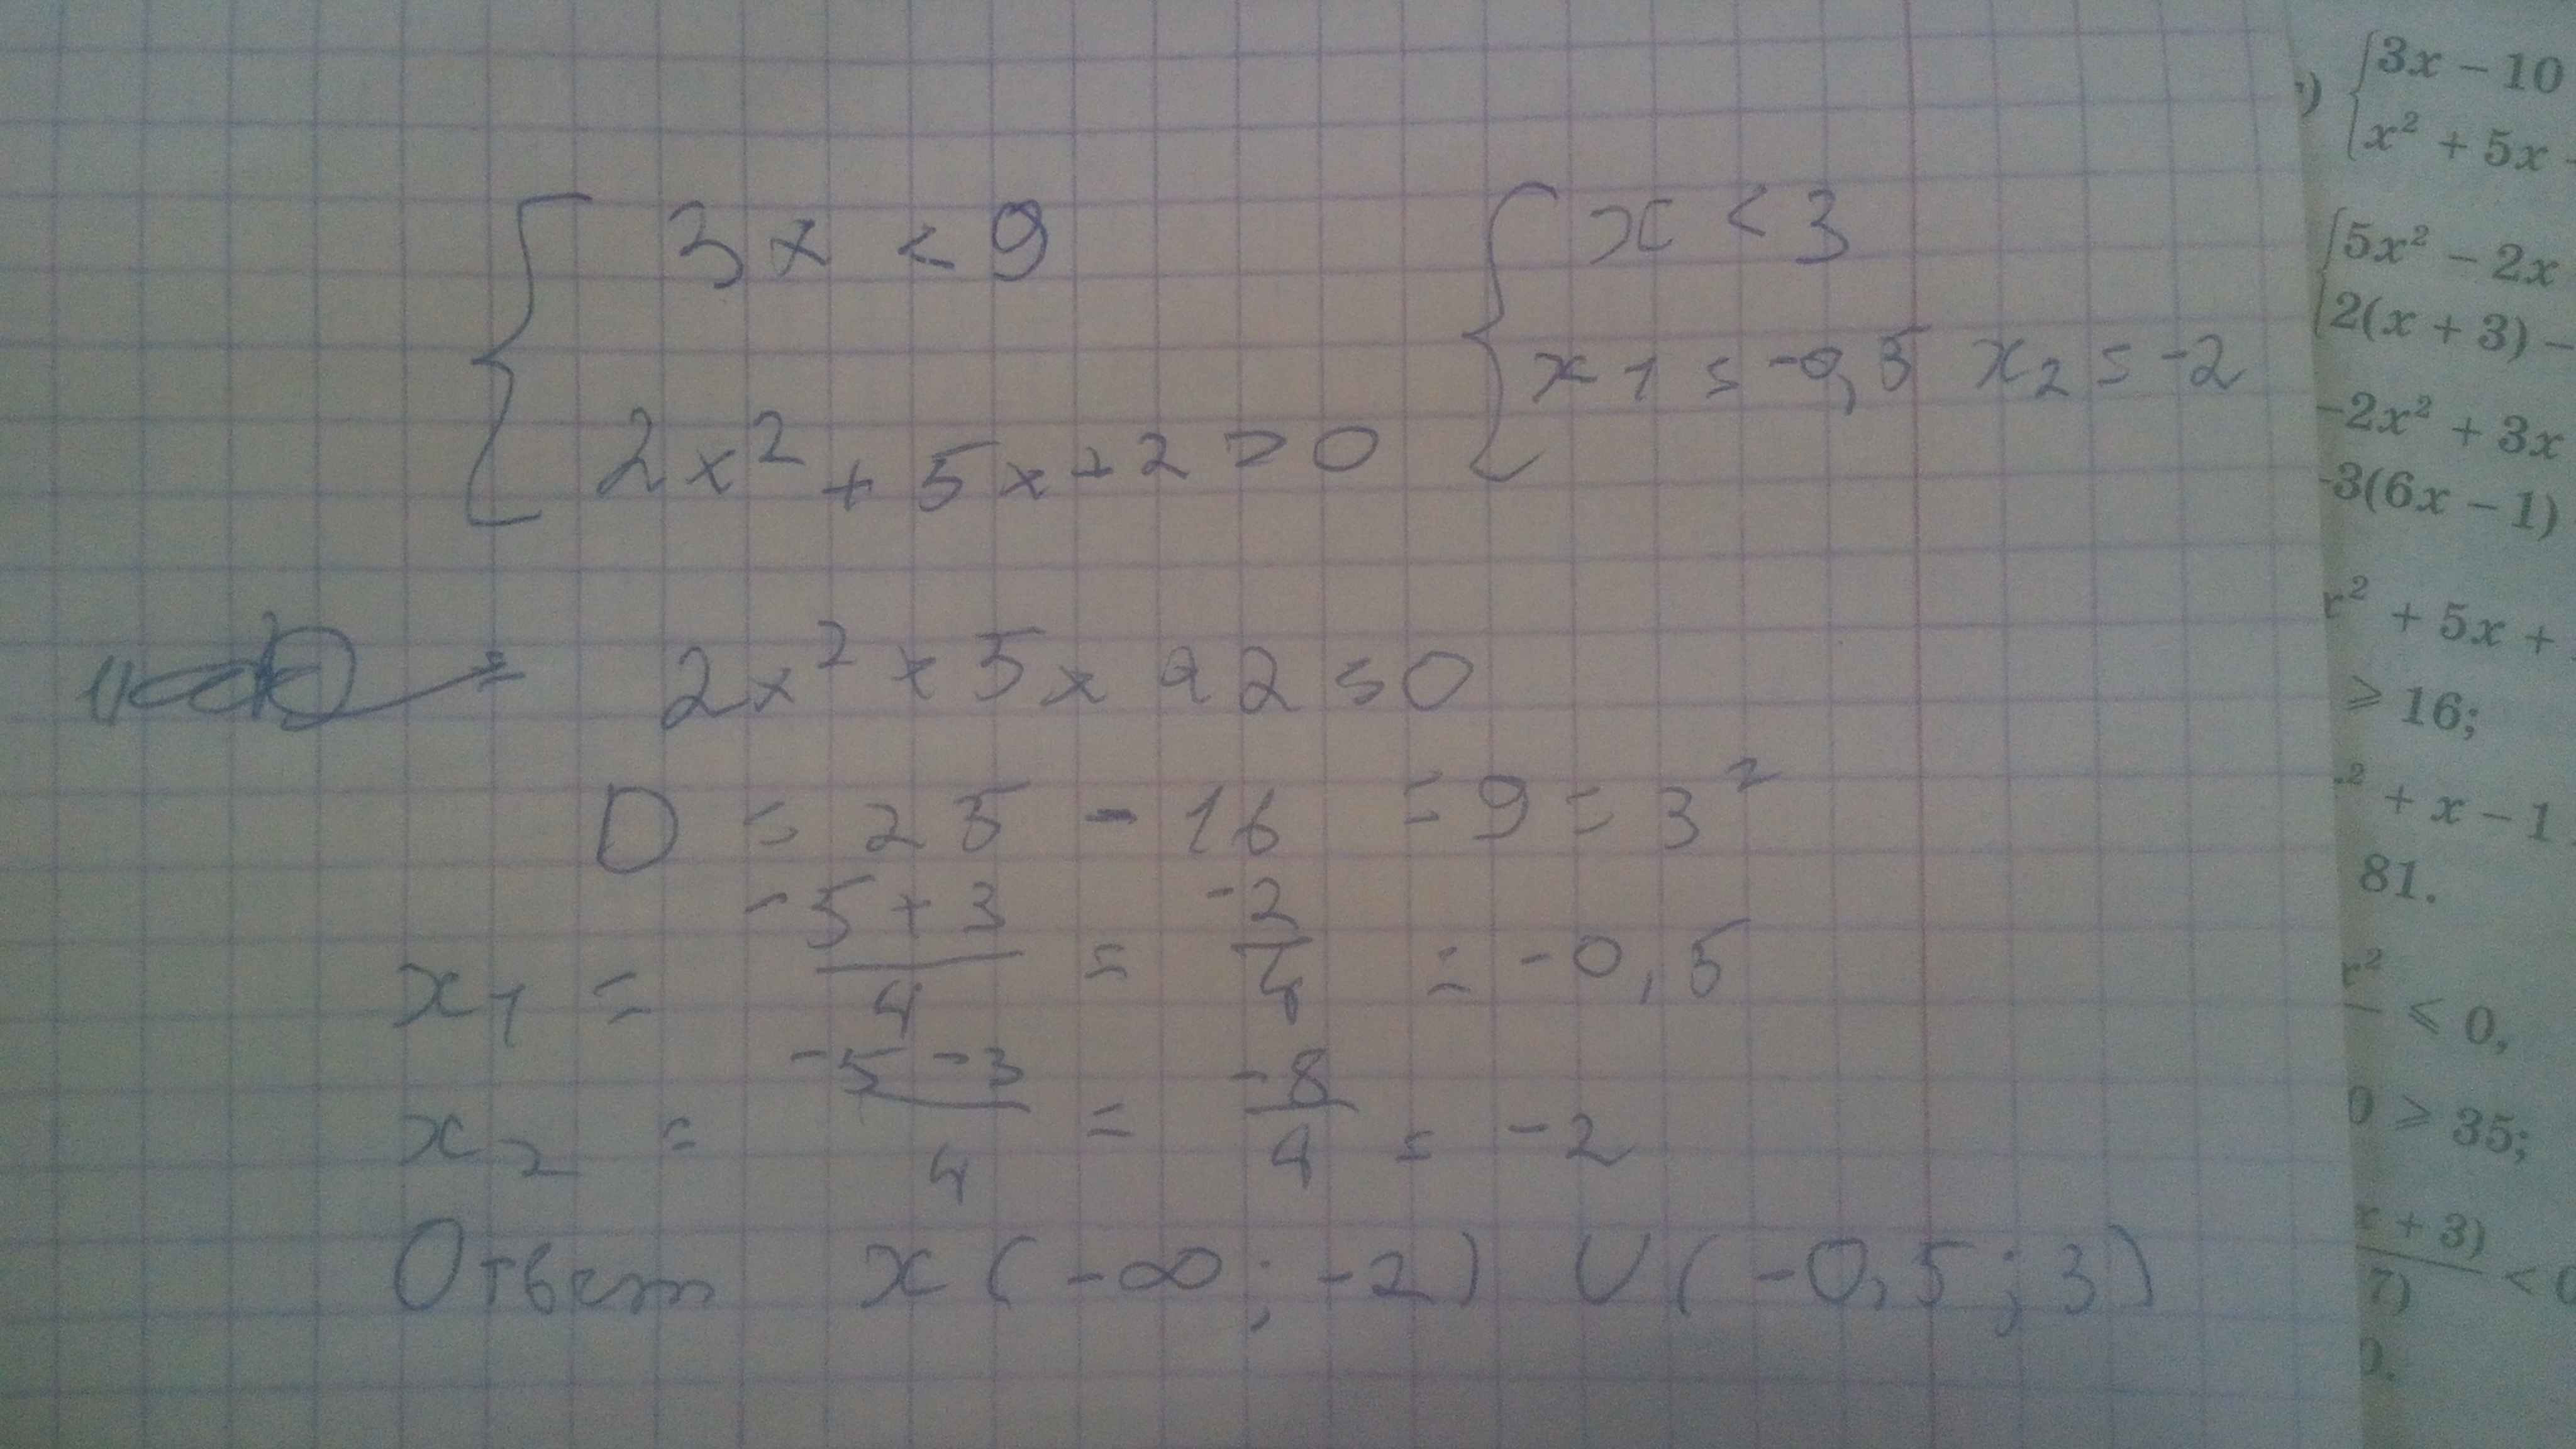 3x < 9
x < 3
2x² + 5x + 2 > 0
x₁ = -0,5 x₂ = -2
2x² + 5x + 2 = 0
D = 25 - 16 = 9 = 3²
x₁ = (-5+3)/4 = -2/4 = -0,5
x₂ = (-5-3)/4 = -8/4 = -2
Ответ x (-∞; -2) ∪ (-0,5; 3)
) 3x - 10
x² + 5x -
5x² - 2x
2(x + 3) -
-2x² + 3x
-3(6x - 1)
x² + 5x +
⩾ 16;
² + x - 1
81.
x²
⩽ 0,
0 ⩾ 35;
x + 3)
7) < 0
0.